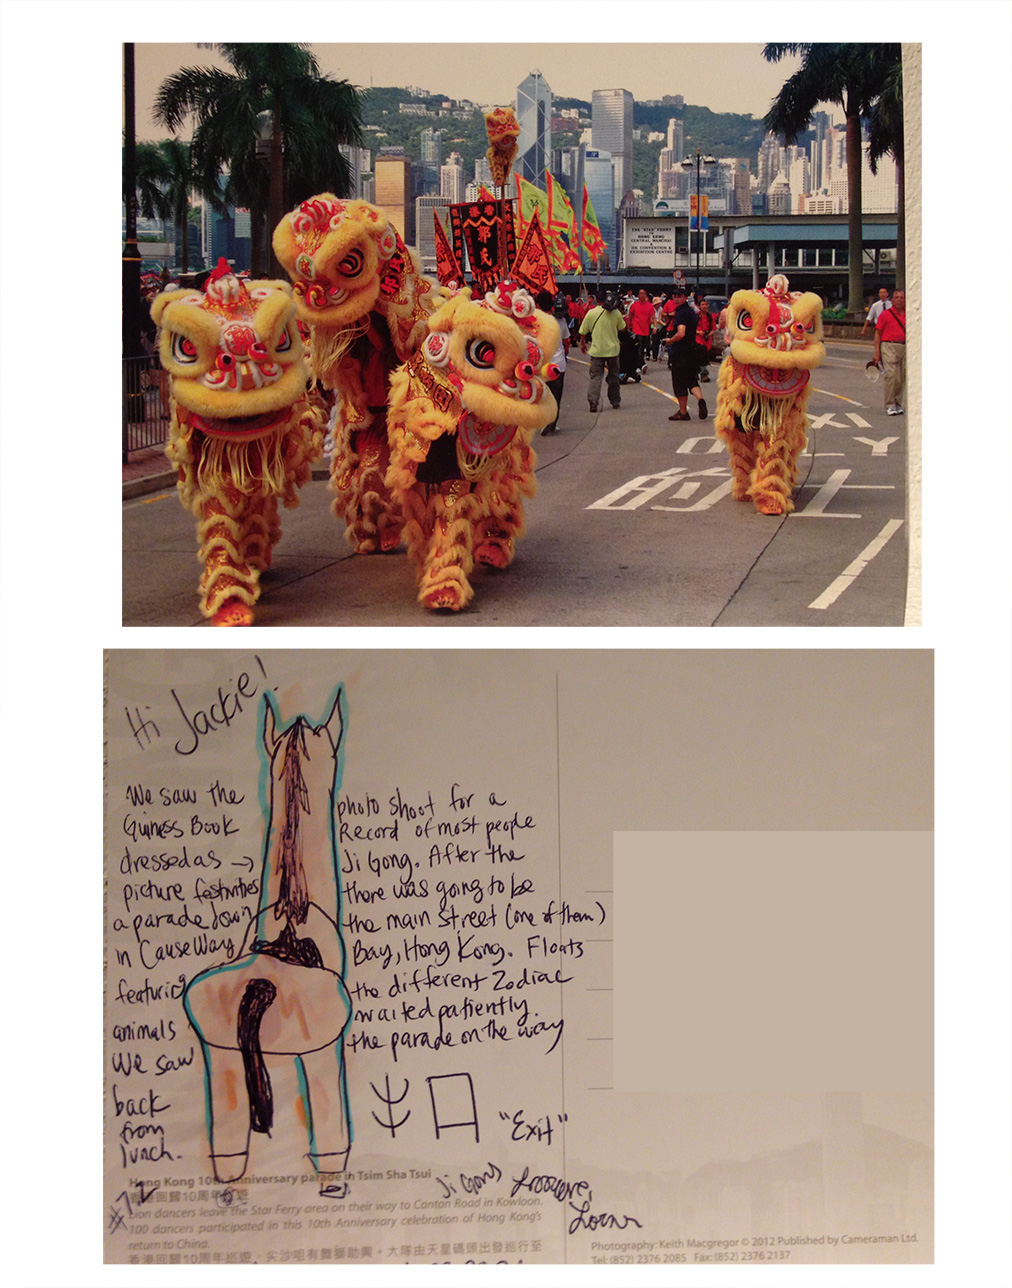 郭氏
THE "STAR" FERRY
TO
HONG KONG
CENTRAL WANCHAI
&
HK CONVENTION &
EXHIBITION CENTRE
的士
TAXI
Hi Jackie!
We saw the photo shoot for a
Guiness Book Record of most people
dressed as → Ji Gong. After the
picture festivities there was going to be
a parade down the main street (one of them)
in CauseWay Bay, Hong Kong. Floats
featuring the different Zodiac
animals waited patiently.
We saw the parade on the way
back
from
lunch.
"Exit"
#12
Ji Gong
Hong Kong 10th Anniversary parade in Tsim Sha Tsui
香港回歸10周年巡遊
Lion dancers leave the Star Ferry area on their way to Canton Road in Kowloon.
100 dancers participated in this 10th Anniversary celebration of Hong Kong's
return to China.
香港回歸10周年巡遊，尖沙咀有舞獅助興。大隊由天星碼頭出發巡行至
Photography: Keith Macgregor © 2012 Published by Cameraman Ltd.
Tel: (852) 2376 2085 Fax: (852) 2376 2137